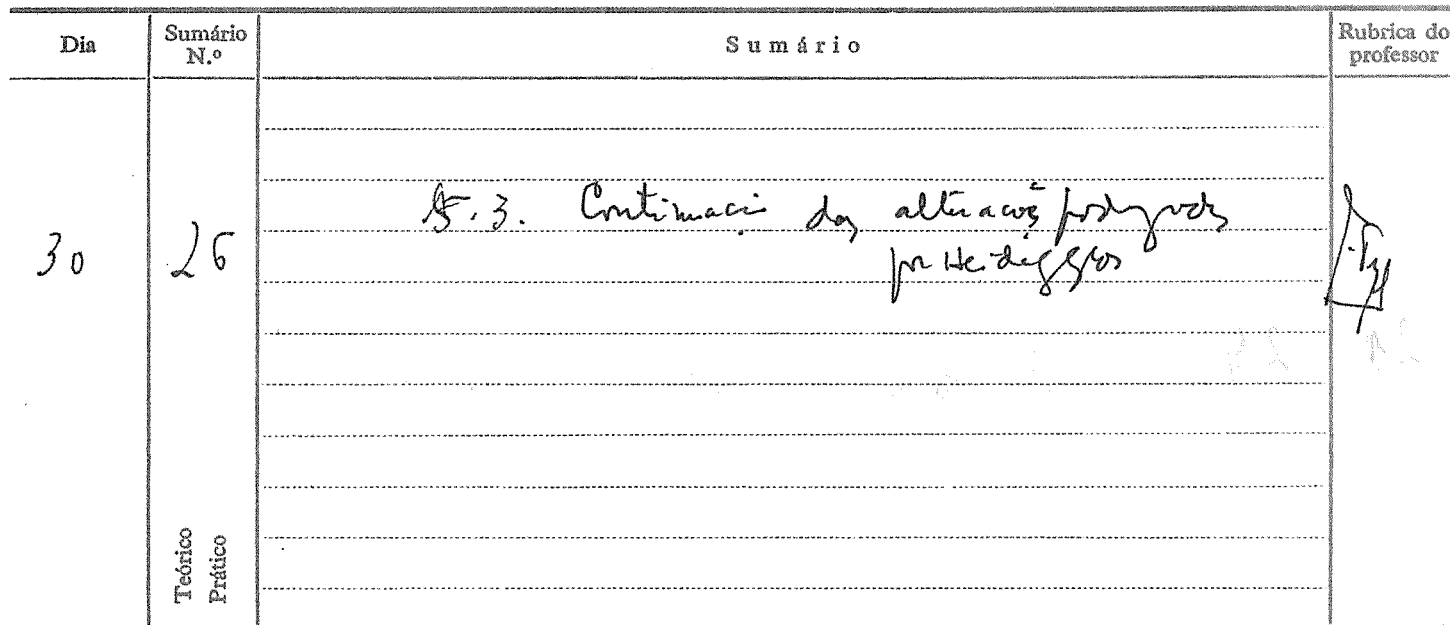 Dia
Sumário N.º
Sumário
Rubrica do professor
30
26
§.3. Continuação das alterações
por Heidegger
Teórico
Prático